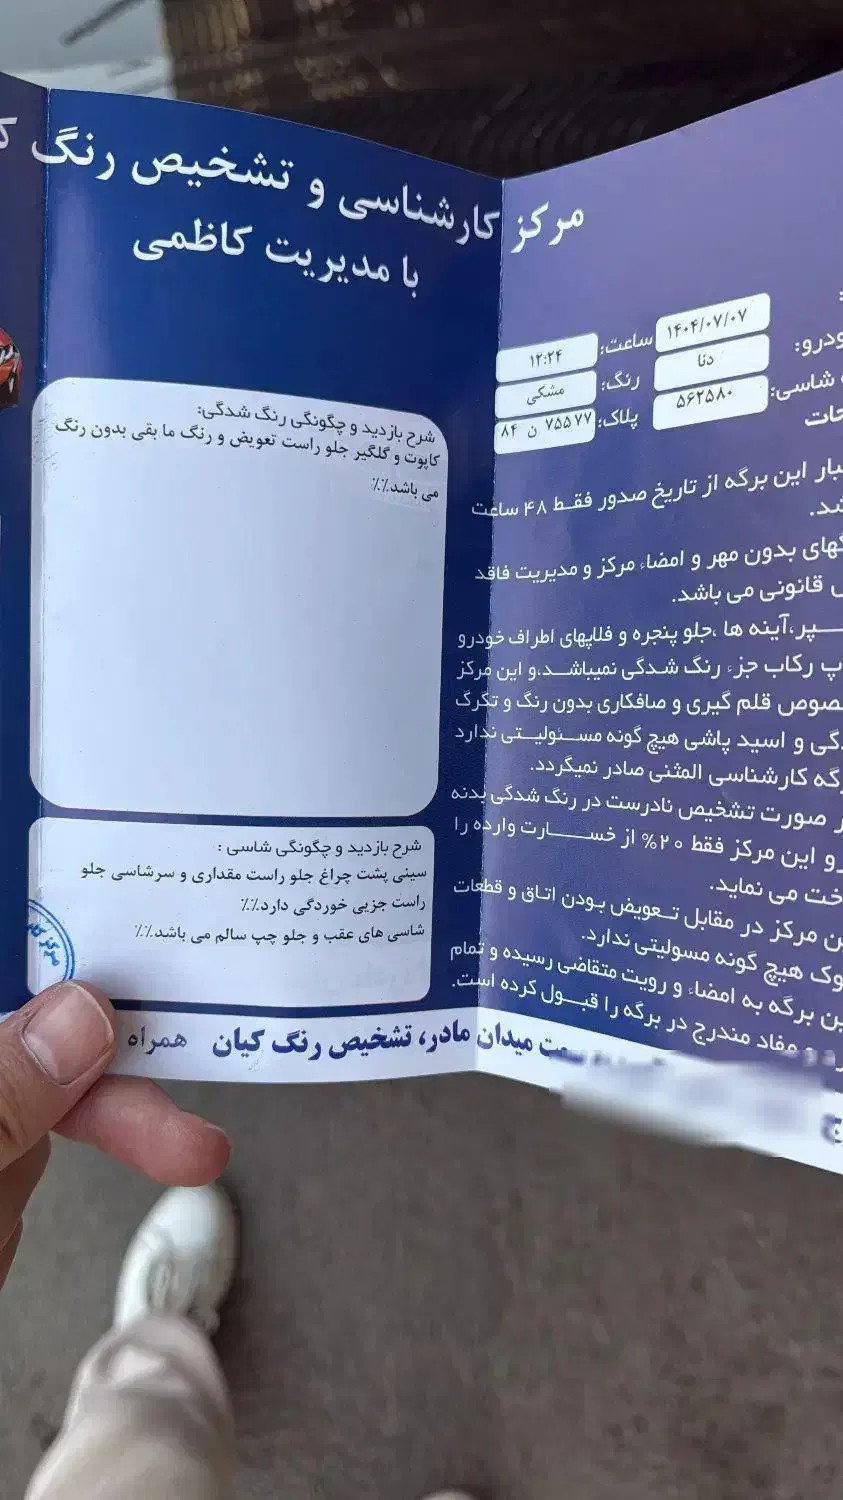 مرکز کارشناسی و تشخیص رنگ
با مدیریت کاظمی
۱۴۰۴/۰۷/۰۷ ساعت: ۱۲:۲۴
دنا رنگ: مشکی
شاسی: ۵۶۲۵۸۰ پلاک: ۷۵۵۷۷ ن ۸۴
این برگه از تاریخ صدور فقط ۴۸ ساعت
بدون مهر و امضاء مرکز و مدیریت فاقد
قانونی می باشد.
آینه ها ،جلو پنجره و فلاپهای اطراف خودرو
رکاب جزء رنگ شدگی نمیباشد.و این مرکز
قلم گیری و صافکاری بدون رنگ و تگرگ
و اسید پاشی هیچ گونه مسئولیتی ندارد
کارشناسی المثنی صادر نمیگردد.
صورت تشخیص نادرست در رنگ شدگی بدنه
این مرکز فقط ۲۰% از خسارت وارده را
می نماید.
مرکز در مقابل تعویض بودن اتاق و قطعات
هیچ گونه مسولیتی ندارد.
برگه به امضاء و رویت متقاضی رسیده و تمام
و مفاد مندرج در برگه را قبول کرده است.
شرح بازدید و چگونگی رنگ شدگی:
کاپوت و گلگیر جلو راست تعویض و رنگ ما بقی بدون رنگ
می باشد٪.٪
شرح بازدید و چگونگی شاسی :
سینی پشت چراغ جلو راست مقداری و سرشاسی جلو
راست جزیی خوردگی دارد.٪.٪
شاسی های عقب و جلو چپ سالم می باشد.٪.٪
میدان مادر، تشخیص رنگ کیان همراه